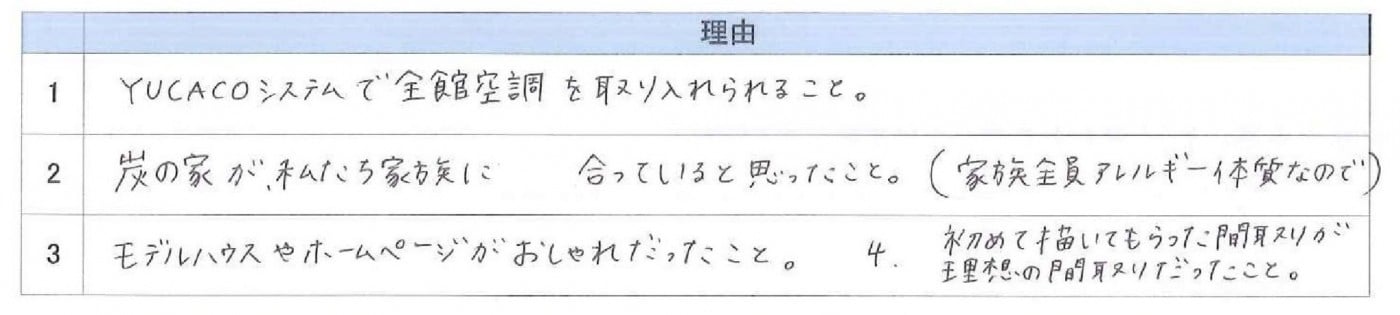 理由
1 YUCACOシステムで全館空調を取り入れられること。
2 炭の家が、私たち家族に 合っていると思ったこと。(家族全員アレルギー体質なので)
3 モデルハウスやホームページがおしゃれだったこと。 4. 初めて描いてもらった間取りが
理想の間取りだったこと。